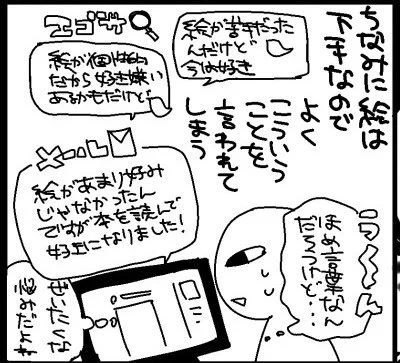 ちなみに絵は
下手なので
よく
こういう
ことを
言われて
しまう
絵が苦手だった
んだけど
今は好き
エゴサ
絵が個性的
だから好き嫌い
あるかもだけど
メール
絵があまり好み
じゃなかったん
ですが本を読んで
好きになりました!
う〜〜ん
ほめ言葉なん
だろうけど…
ぜいたくな
悩みだけど